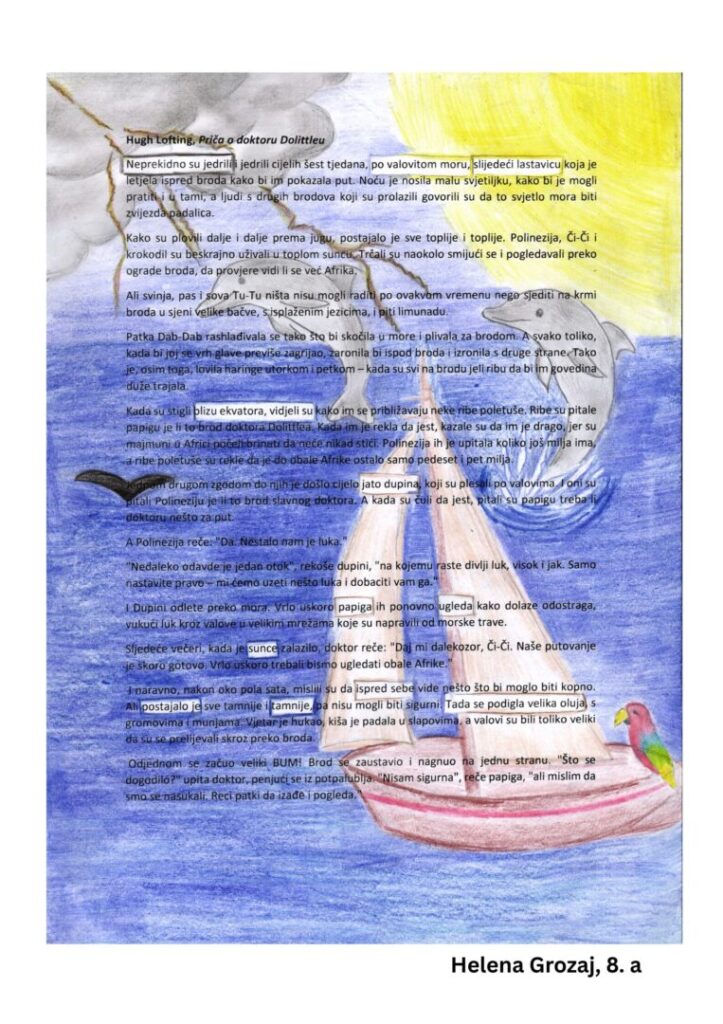 Hugh Lofting, Priča o doktoru Dolittleu
Neprekidno su jedrili i jedrili cijelih šest tjedana, po valovitom moru, slijedeći lastavicu koja je
letjela ispred broda kako bi im pokazala put. Noću je nosila malu svjetiljku, kako bi je mogli
pratiti i u tami, a ljudi s drugih brodova koji su prolazili govorili su da to svjetlo mora biti
zvijezda padalica.
Kako su plovili dalje i dalje prema jugu, postajalo je sve toplije i toplije. Polinezija, Či-Či i
krokodil su beskrajno uživali u toplom suncu. Trčali su naokolo smijući se i pogledavali preko
ograde broda, da provjere vidi li se već Afrika.
Ali svinja, pas i sova Tu-Tu ništa nisu mogli raditi po ovakvom vremenu nego sjediti na krmi
broda u sjeni velike bačve, s isplaženim jezicima, i piti limunadu.
Patka Dab-Dab rashlađivala se tako što bi skočila u more i plivala za brodom. A svako toliko,
kada bi joj se vrh glave previše zagrijao, zaronila bi ispod broda i izronila s druge strane. Tako
je, osim toga, lovila haringe utorkom i petkom – kada su svi na brodu jeli ribu da bi im govedina
duže trajala.
Kada su stigli blizu ekvatora, vidjeli su kako im se približavaju neke ribe poletuše. Ribe su pitale
papigu je li to brod doktora Dolittlea. Kada im je rekla da jest, kazale su da im je drago, jer su
majmuni u Africi počeli brinuti da neće nikad stići. Polinezija ih je upitala koliko još milja ima,
a ribe poletuše su rekle da je do obale Afrike ostalo samo pedeset i pet milja.
Jednom drugom zgodom do njih je došlo cijelo jato dupina, koji su plesali po valovima. I oni su
pitali Polineziju je li to brod slavnog doktora. A kada su čuli da jest, pitali su papigu treba li
doktoru nešto za put.
A Polinezija reče: "Da. Nestalo nam je luka."
"Nedaleko odavde je jedan otok", rekoše dupini, "na kojemu raste divlji luk, visok i jak. Samo
nastavite pravo – mi ćemo uzeti nešto luka i dobaciti vam ga."
I Dupini odlete preko mora. Vrlo uskoro papiga ih ponovno ugleda kako dolaze odostraga,
vukući luk kroz valove u velikim mrežama koje su napravili od morske trave.
Sljedeće večeri, kada je sunce zalazilo, doktor reče: "Daj mi dalekozor, Či-Či. Naše putovanje
je skoro gotovo. Vrlo uskoro trebali bismo ugledati obale Afrike."
I naravno, nakon oko pola sata, mislili su da ispred sebe vide nešto što bi moglo biti kopno.
Ali postajalo je sve tamnije i tamnije, pa nisu mogli biti sigurni. Tada se podigla velika oluja, s
gromovima i munjama. Vjetar je hukao, kiša je padala u slapovima, a valovi su bili toliko veliki
da su se prelijevali skroz preko broda.
Odjednom se začuo veliki BUM! Brod se zaustavio i nagnuo na jednu stranu. "Što se
dogodilo?" upita doktor, penjući se iz potpalublja. "Nisam sigurna", reče papiga, "ali mislim da
smo se nasukali. Reci patki da izađe i pogleda."
Helena Grozaj, 8. a